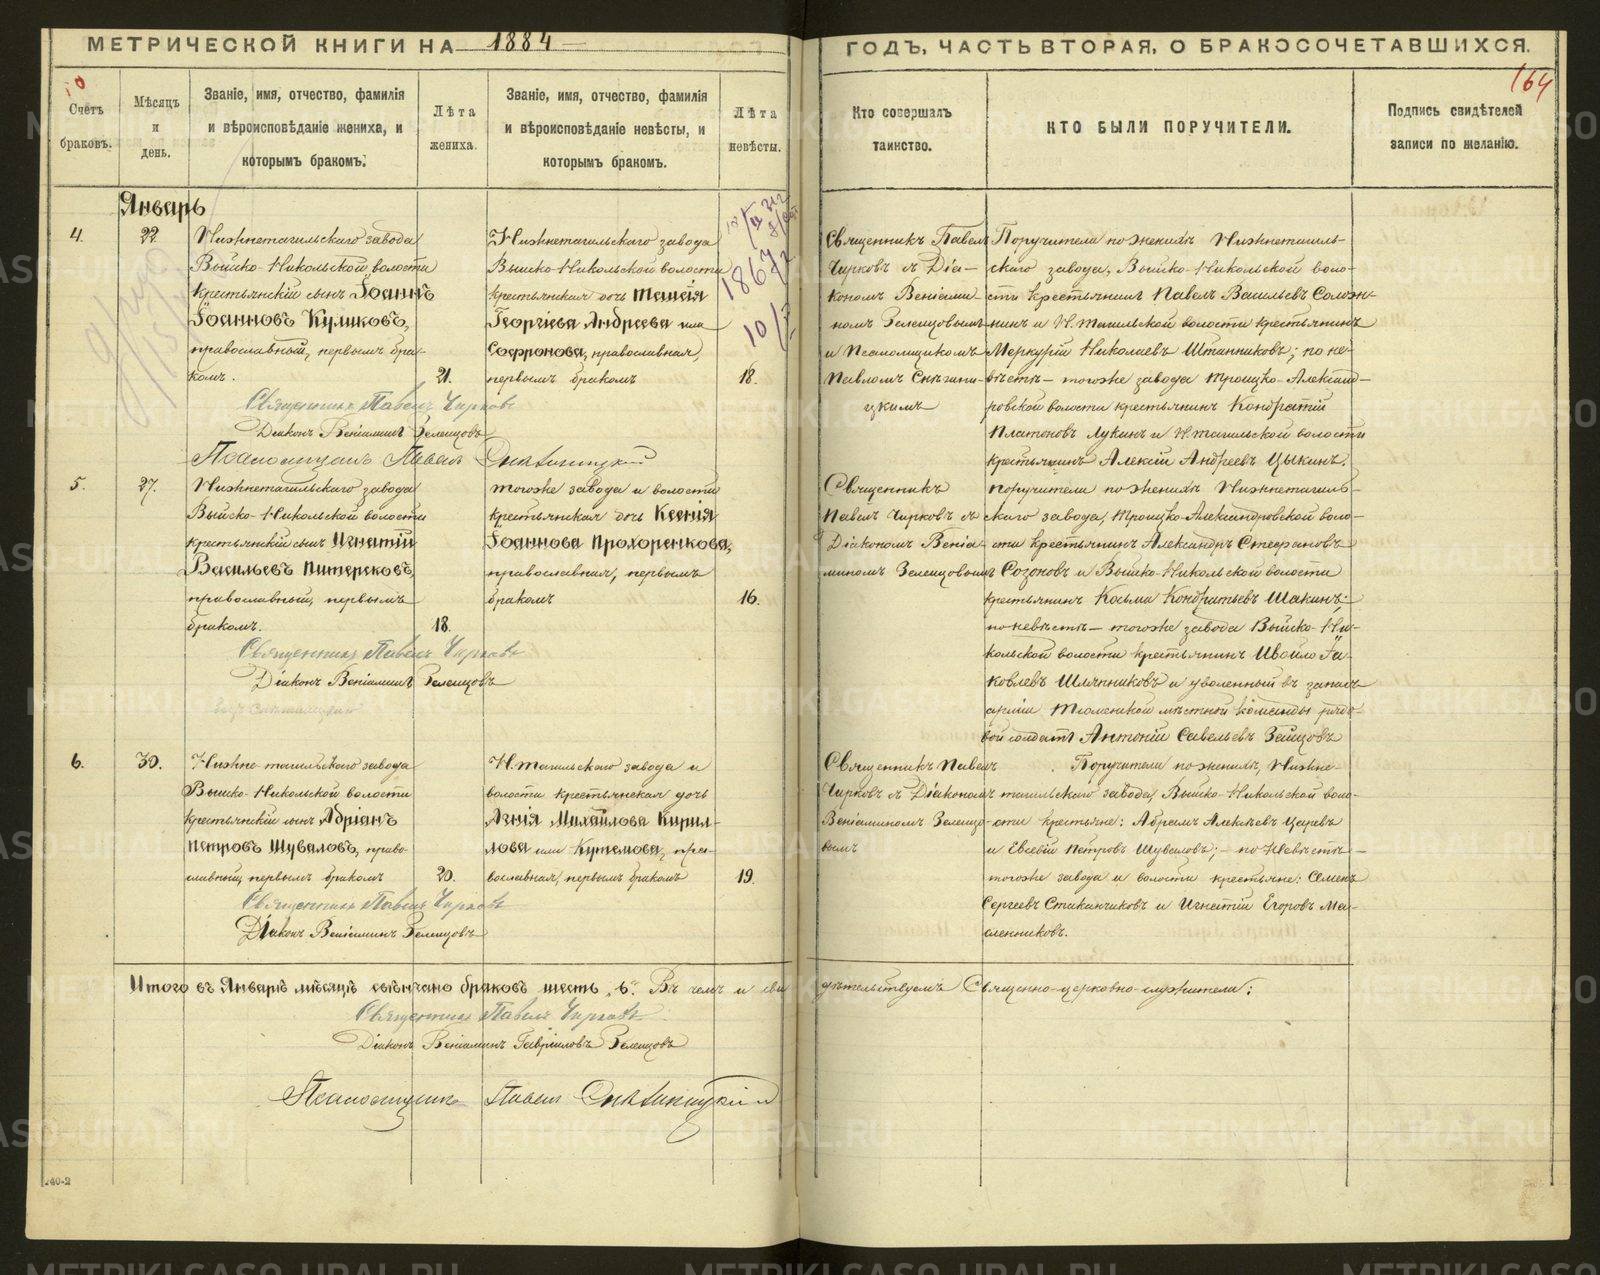 МЕТРИЧЕСКОЙ КНИГИ НА 1884
ГОДЪ, ЧАСТЬ ВТОРАЯ, О БРАКОСОЧЕТАВШИХСЯ.
164
Счетъ браковъ.
Мѣсяцъ и день.
Званіе, имя, отчество, фамилія
и вѣроисповѣданіе жениха, и
которымъ бракомъ.
Лѣта жениха.
Званіе, имя, отчество, фамилія
и вѣроисповѣданіе невѣсты, и
которымъ бракомъ.
Лѣта невѣсты.
Кто совершалъ
таинство.
КТО БЫЛИ ПОРУЧИТЕЛИ.
Подпись свидѣтелей
записи по желанію.
Январь
4.
22.
Нижнетагильскаго завода
Выйско-Никольской волости
крестьянскій сынъ Іоаннъ
Іоанновъ Куликовъ,
православный, первымъ бра-
комъ.
21.
Нижнетагильскаго завода
Выйско-Никольской волости
крестьянская дочь
Георгіева Андреева или
Софронова, православная,
первымъ бракомъ
18.
1867
Священникъ Павелъ
Чирковъ съ Діа-
кономъ Веніами-
номъ Зеленцовымъ
и Псаломщикомъ
Павломъ
цкимъ
Поручители по женихѣ Нижнетагиль-
скаго завода, Выйско-Никольской воло-
сти крестьянинъ Павелъ Васильевъ Соложе-
нинъ и Н. Тагильской волости крестьянинъ
Меркурій Николаевъ Штанниковъ; по не-
вѣстѣ — тогоже завода Троицко-Александ-
ровской волости крестьянинъ Кондратій
Платоновъ Лукинъ и Н. тагильской волости
крестьянинъ Алексій Андреевъ Цыкинъ.
Священникъ Павелъ Чирковъ
Діаконъ Веніаминъ Зеленцовъ
Псаломщикъ Павелъ
5.
27.
Нижнетагильскаго завода
Выйско-Никольской волости
крестьянскій сынъ Игнатій
Васильевъ Питерсковъ,
православный, первымъ
бракомъ.
18.
тогоже завода и волости
крестьянская дочь Ксенія
Іоаннова Прохоренкова,
православная, первымъ
бракомъ
16.
Священникъ
Павелъ Чирковъ съ
Діакономъ Веніа-
миномъ Зеленцовымъ
поручители по женихѣ Нижнетагиль-
скаго завода, Троицко-Александровской воло-
сти крестьянинъ Александръ Стефановъ
Созоновъ и Выйско-Никольской волости
крестьянинъ Косьма Кондратьевъ Шакинъ;
по невѣстѣ — тогоже завода Выйско-Ни-
кольской волости крестьянинъ Ивойло Іа-
ковлевъ Шляпниковъ и уволенный въ запасъ
арміи Тюменской мѣстной команды рядо-
вой солдатъ Антоній Савельевъ Зайцовъ
Священникъ Павелъ Чирковъ
Діаконъ Веніаминъ Зеленцовъ
6.
30.
Нижне-тагильскаго завода
Выйско-Никольской волости
крестьянскій сынъ Адріанъ
Петровъ Шуваловъ, право-
славный, первымъ бракомъ
20.
Н. тагильскаго завода и
волости крестьянская дочь
Агнія Михайлова Кирил-
лова или Кутемова, пра-
вославная, первымъ бракомъ
19.
Священникъ Павелъ
Чирковъ съ Діакономъ
Веніаминомъ Зеленцо-
вымъ
Поручители по женихѣ, Нижне-
тагильскаго завода, Выйско-Никольской воло-
сти крестьяне: Абрамъ Алексѣевъ Царевъ
и Евсевій Петровъ Шуваловъ; — по невѣстѣ —
тогоже завода и волости крестьяне: Семенъ
Сергеевъ Стаканчиковъ и Игнатій Егоровъ Ма-
сленниковъ.
Священникъ Павелъ Чирковъ
Діаконъ Веніаминъ Зеленцовъ
Итого въ Январѣ мѣсяцѣ свѣнчано браковъ шесть „6." Въ чемъ и сви-
дѣтельствуемъ Священно-церковно-служители:
Священникъ Павелъ Чирковъ
Діаконъ Веніаминъ Гавріиловъ Зеленцовъ
Псаломщикъ Павелъ
METRIKI.GASO-URAL.RU